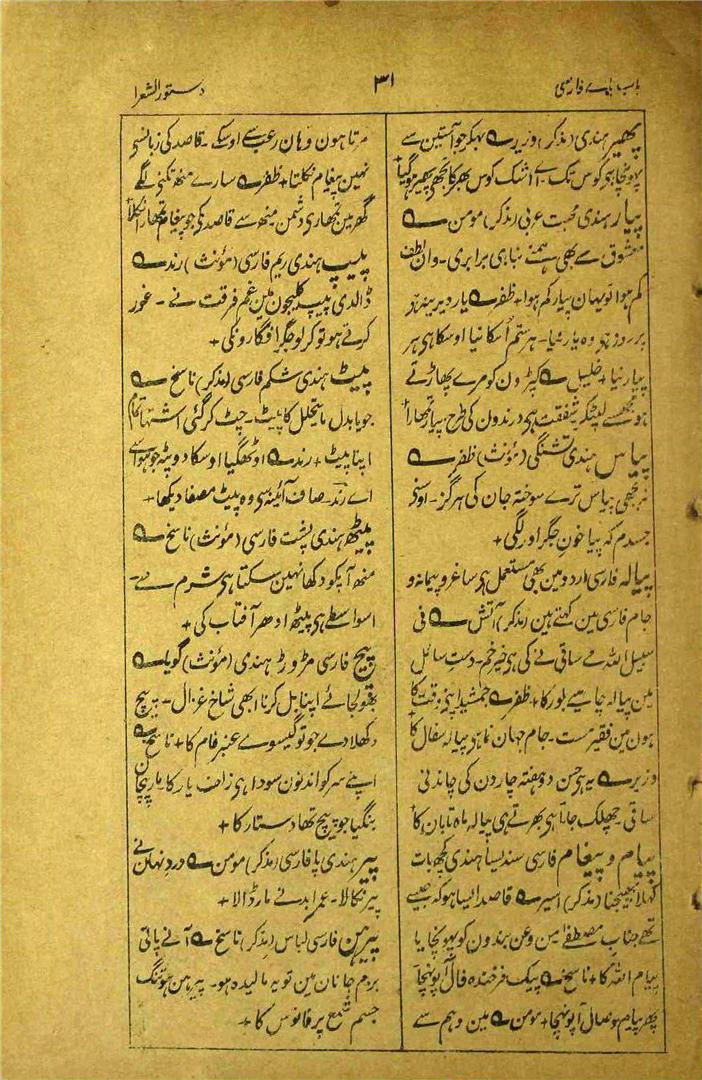 باب بائے فارسی
۳۱
دستور الشعرا
پھیر ہندی (مذکر) وزیر ؎ بہکر جو آستین سے
پہونچا ہی کوس تک ۔ اے اشک کوس بھر کا تجھی پھیر ہوگیا
پیار ہندی محبت عربی (مذکر) مومن ؎
معشوق سے بھی ہمنے نباہی برابری ۔ وان لطف
کم ہوا تو یہان پیار کم ہوا + ظفر ؎ یار دیرینہ
ہر روز ہو وہ یار نیا ۔ ہر ستم اسکا نیا اوسکا ہی ہر
پیار نیا + خلیل ؎ کپڑون کو مرے پھاڑتے
ہو مجھسے لپٹکر شفقت ہی درندون کی طرح پیار تمھارا
پیاس ہندی تشنگی (مؤنث) ظفر ؎
نہ بجھی پیاس ترے سوختہ جان کی ہرگز ۔
جسدم کہ پیا خون جگر اور لگی +
پیالہ فارسی اردو مین بھی مستعمل ہی ساغر و پیمانہ و
جام فارسی مین کہتے ہین (مذکر) آتش ؎ فی
سبیل اللہ مے ساقی نے کی ہی خیر خم ۔ دست سائل
مین پیالہ چاہیے بلور کا + ظفر ؎ جمشید اپنے وقت کا
ہون مین فقیر مست ۔ جام جہان نما ہی پیالہ سفال کا
وزیر ؎ یہ ہی حسن دو ہفتہ چار دن کی چاندنی
ساقی چھلک جاتا ہی بھرتے ہی پیالہ ماہ تابان کا
پیام و پیغام فارسی سندیسا ہندی کچھ بات
کہلا بھیجنا (مذکر) اسیر ؎ قاصد ایسا ہو کہ جیسے
تھے جناب مصطفےٰ من و عن بندون کو پہونچایا
پیام اللہ کا + ناسخ ؎ پیک فرخندہ فال آپہونچا
پھر پیام وصال آپہونچا + مومن ؎ مین وہم سے
مرتا ہون وہان رعب سے اوسکے ۔ قاصد کی زبانسے
نہین پیغام نکلتا + ظفر ؎ سارے منھ تکنے لگے
گھر مین تمھاری دشمن منھ سے قاصد کی جو پیغام تمھارا نکلا
پیپ ہندی ریم فارسی (مؤنث) رند ؎
ڈالدی پیپ کلیجون مین غم فرقت نے ۔ غور
کرتے ہو تو کر لو جگر افگارونکی +
پیٹ ہندی شکم فارسی (مذکر) ناسخ ؎
جو یا بدل مایتحلل کا پیٹ ۔ چٹ کر گئی اشتہا تمام
اپنا پیٹ + رند ؎ اوٹھگیا اوسکا دوپٹہ جو ہوا سے
اے رند ۔ صاف آئینہ سی وہ پیٹ مصفا دیکھا +
پیٹھ ہندی پشت فارسی (مؤنث) ناسخ ؎
منھ آپکو دکھا نہین سکتا ہی شرم سے ۔
اسواسطے ہی پیٹھ ادھر آفتاب کی +
پیچ فارسی مڑوڑ ہندی (مؤنث) گویا ؎
بھولجائے اپنا بل کرنا ابھی شاخ غزال ۔ پیچ
دکھلا دے جو تو گیسوے عنبر فام کا + ناسخ ؎
اپنے سر کو اندنون سودا ہی زلف یار کا ۔ مار پیچان
بنگیا جو پیچ تھا دستار کا +
پیر ہندی پا فارسی (مذکر) مومن ؎ درد نہان نے
پیر نکالا ۔ عمر ابد نے مار ڈالا +
پیرہن فارسی لباس (مذکر) ناسخ ؎ آنے پائے
بزم جانان مین تو یہ مالیدہ ہو ۔ پیرہن ہو تنگ
جسم شمع پر فانوس کا +